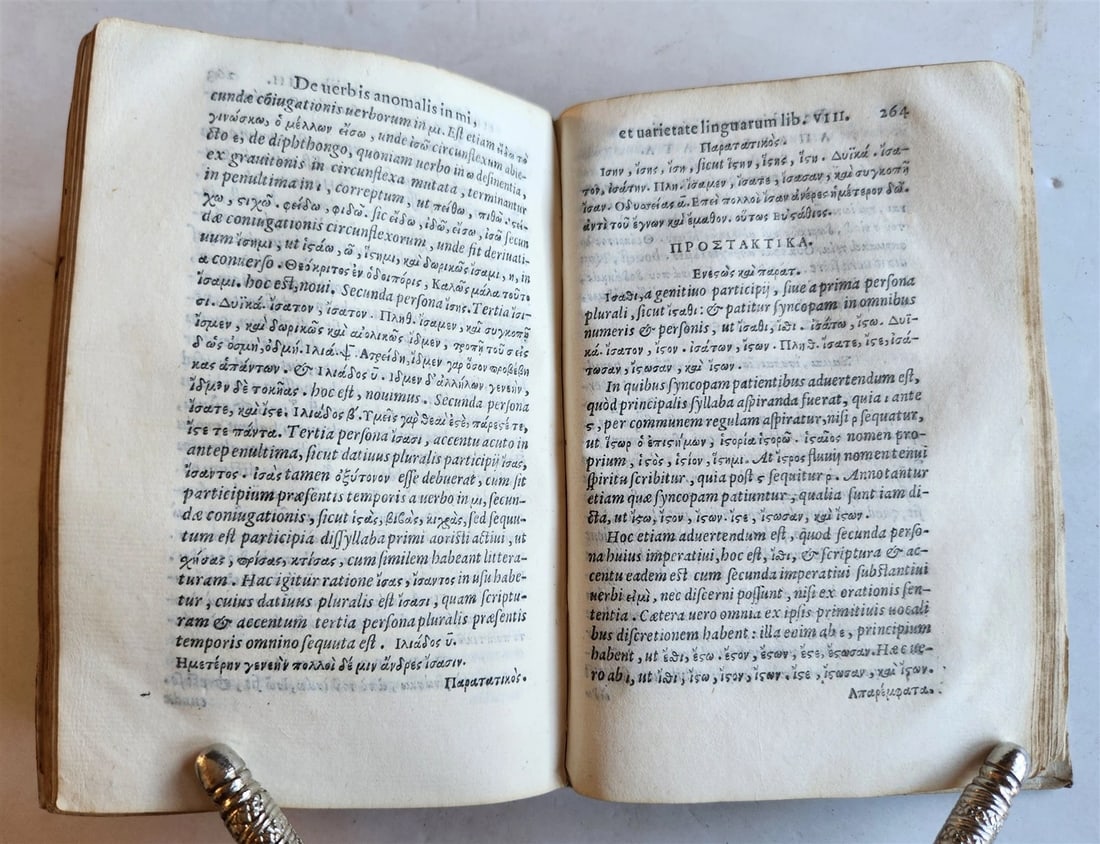 De uerbis anomalis in mi,
cundæ cōiugationis uerborum in μι. Est etiam εἴδω τὸ
γινώσκω, ὁ μέλλων εἴσω, unde ἰσῶ circunflexum abie-
cto ε, de diphthongo, quoniam uerbo in ω desinentia,
ex grauitonis in circunflexa mutata, terminantur
in penultima in ι, correptum, ut πείθω, πιθῶ. στεί-
χω, στιχῶ. φείδω, φιδῶ. sic εἴδω, ἰδῶ, εἴσω, ἰσῶ secun
dæ coniugationis circunflexorum, unde fit deriuati-
uum ἴσημι, ut ἱστάω, ῶ, ἵστημι, καὶ δωρικῶς ἴσαμι, η, in
α conuerso. Θεόκριτος ἐν ὁδοιπόροις, Καλῶς μάλα τοῦτό
ἴσαμι. hoc est, noui. Secunda persona ἴσης. Tertia ἴση-
σι. Δυϊκά. ἴσατον, ἴσατον. Πληθ. ἴσαμεν, καὶ συγκοπῇ
ἴσμεν, καὶ δωρικῶς καὶ αἰολικῶς ἴδμεν, τροπῇ τοῦ σ εἰς
δ ὡς ὀσμὴ, ὀδμή. Ιλιά. ψ. Ατρείδη, ἴδμεν γὰρ ὅσον προβέβη
κας ἁπάντων. & Ιλιάδος ῦ. Ιδμεν δ' ἀλλήλων γενεὴν,
ἴδμεν δὲ τοκῆας. hoc est, nouimus. Secunda persona
ἴσατε, καὶ ἴστε. Ιλιάδος β. Υμεῖς γὰρ θεαί ἐστέ, πάρεστέ τε,
ἴστε τε πάντα. Tertia persona ἴσασι, accentu acuto in
antepenultima, sicut datiuus pluralis participij ἴσας,
ἴσαντος. ἰσὰς tamen ὀξύτονον esse debuerat, cum sit
participium præsentis temporis a uerbo in μι, secun-
dæ coniugationis, sicut ἱστὰς, βιβὰς, κιχρὰς, sed sequu-
tum est participia dissyllaba primi aoristi actiui, ut
χρήσας, πρίσας, κτίσας, cum similem habeant littera-
turam. Hac igitur ratione ἴσας, ἴσαντος in usu habe-
tur, cuius datiuus pluralis est ἴσασι, quam scriptu-
ram & accentum tertia persona pluralis præsentis
temporis omnino sequuta est. Ιλιάδος ῦ.
Ημετέρην γενεὴν πολλοὶ δέ μιν ἄνδρες ἴσασιν.
Παρατατικὸς.
et uarietate linguarum lib. VIII. 264
Παρατατικὸς.
Ισην, ἴσης, ἴση, sicut ἵστην, ἵστης, ἵστη. Δυϊκά. ἴσα-
τον, ἰσάτην. Πλη. ἴσαμεν, ἴσατε, ἴσασαν, καὶ συγκοπῇ
ἴσαν. Οδυσσείας ᾶ. Επεὶ πολλοὶ ἴσαν ἀνέρες ἡμέτερον δῶ.
ἀντὶ τοῦ ἔγνων καὶ ἔμαθον. οὕτως Εὐστάθιος.
ΠΡΟΣΤΑΚΤΙΚΑ.
Ενεστὼς καὶ παρατ.
Ισαθι, a genitiuo participij, siue a prima persona
plurali, sicut ἵσταθι: & patitur syncopam in omnibus
numeris & personis, ut ἴσαθι, ἴσθι. ἰσάτω, ἴστω. Δυϊ-
κά. ἴσατον, ἴστον. ἰσάτων, ἴστων. Πληθ. ἴσατε, ἴστε, ἰσά-
τωσαν, ἴστωσαν, καὶ ἴστων.
In quibus syncopam patientibus aduertendum est,
quòd principalis syllaba aspiranda fuerat, quia ι ante
ς, per communem regulam aspiratur, nisi ρ sequatur,
ut ἵστωρ ὁ ἐπιστήμων, ἱστορία ἱστορῶ. ἱστιαῖος nomen pro-
prium, ἱστὸς, ἱστίον, ἵστημι. At ἴστρος fluuij nomen tenui
spiritu scribitur, quia post ς sequitur ρ. Annotantur
etiam quæ syncopam patiuntur, qualia sunt iam di-
cta, ut ἴστω, ἴστον, ἴστων. ἴστε, ἴστωσαν, καὶ ἴστων.
Hoc etiam aduertendum est, quòd secunda perso-
na huius imperatiui, hoc est, ἴσθι, & scriptura & ac-
centu eadem est cum secunda imperatiui substantiui
uerbi εἰμὶ, nec discerni possunt, nisi ex orationis sen-
tentia. Cætera uero omnia ex ipsis primitiuis uocali
bus discretionem habent: illa enim ab ε, principium
habent, ut ἔσθι, ἔστω. ἔστον, ἔστων. ἔστε, ἔστωσαν. Hæc ue-
ro ab ι, ut ἴσθι, ἴστω, ἴστον, ἴστων. ἴστε, ἴστωσαν, καὶ ἴστων.
Απαρέμφατα.